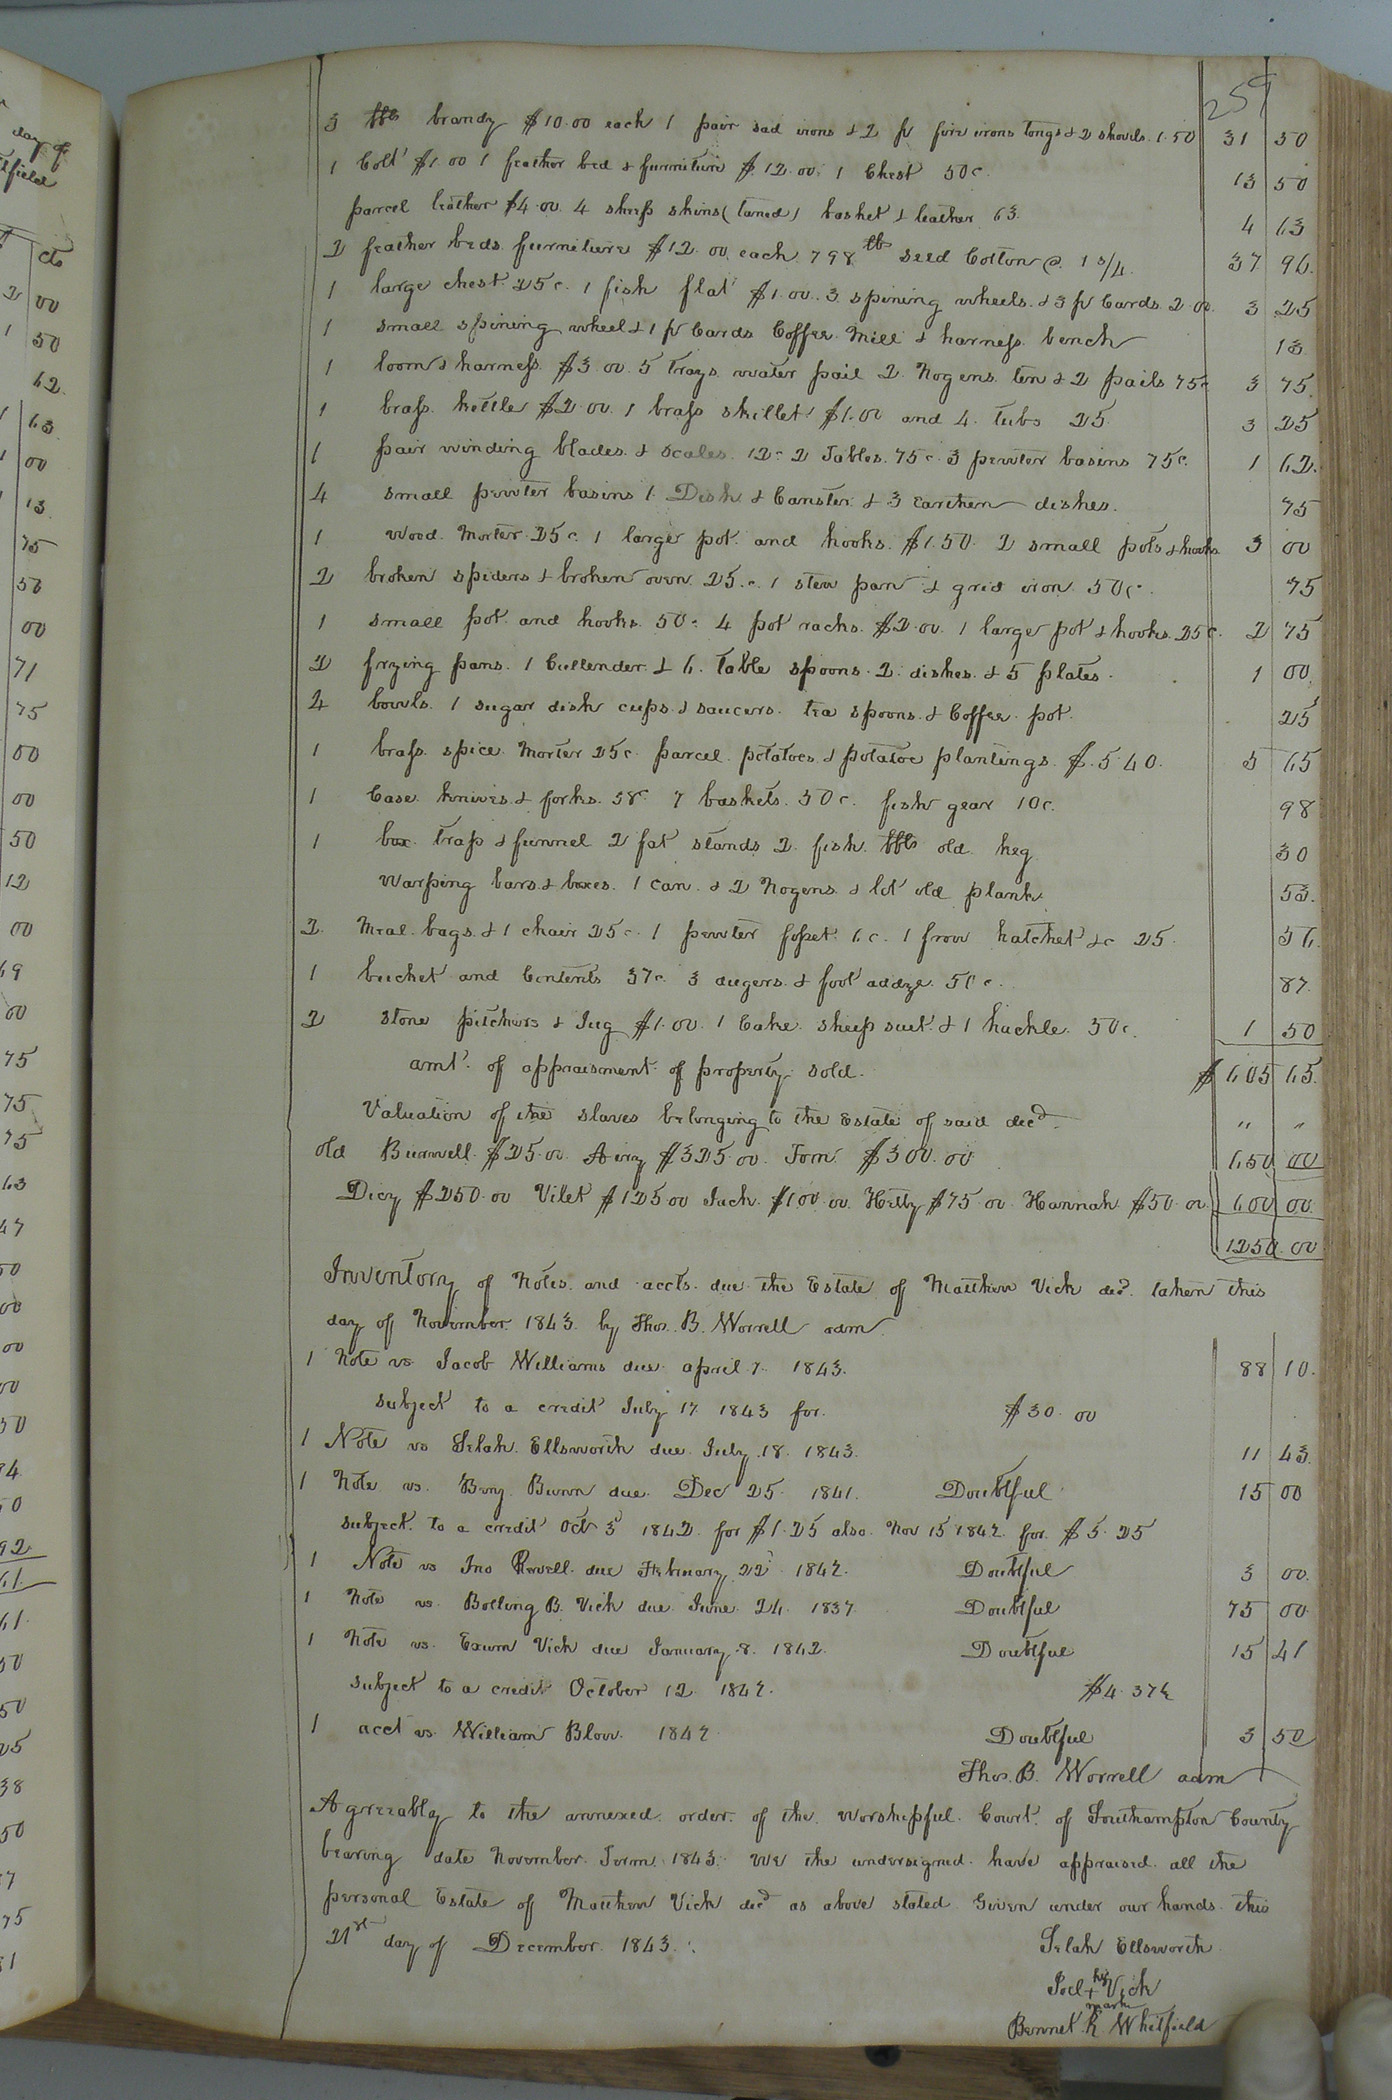 259
3 bbls brandy $10.00 each 1 pair sad irons & 2 pr fire irons tongs & 2 shovels 1.50 31 50
1 Colt $1.00 1 feather bed & furniture $12.00 1 Chest 50c. 13 50
parcel leather $4.00 4 sheep skins (taned) basket & leather 63 4 63
2 feather beds furniture $12.00 each 798 lbs seed Cotton @ 1 3/4 37 96
1 large chest 25c. 1 fish flat $1.00. 3 spining wheels & 3 pr Cards 2.00 3 25
1 small spining wheel & 1 pr Cards Coffee Mill & harness bench 13
1 loom & harness $3.00 5 trays water pail 2 Nogens ten & 2 pails 75c 3 75
1 brass kettle $2.00 1 brass skillet $1.00 and 4 tubs 25 3 25
1 pair winding blades & scales 12c 2 Tables 75c 3 pewter basins 75c. 1 62
4 small pewter basins 1 Dish & Canster & 3 earthen dishes. 75
1 wood Morter 25c. 1 large pot and hooks $1.50 2 small pots & hooks 3 00
2 broken spiders & broken oven 25.c. 1 stew pan & grid iron 50c. 75
1 small pot and hooks 50c 4 pot racks $2.00 1 large pot & hooks 25c. 2 75
2 frying pans 1 Cullender & 6 table spoons 2 dishes & 5 plates. 1 00
4 bowls 1 sugar dish cups & saucers tea spoons & Coffee pot. 25
1 brass spice Morter 25c. parcel potatoes & potatoe plantings $5.40. 5 65
1 Case knives & forks 58c 7 baskets 30c. fish gear 10c. 98
1 box trap & funnel 2 fat stands 2 fish bbls old keg 30
Warping bars & boxes 1 can & 2 Nogens & lot old plank 53.
2 Meal bags & 1 chair 25c. 1 pewter 6c. 1 frow hatchet &c 25 56
1 bucket and Contents 37c. 3 augers & foot addze 50c. 87.
2 stone pitchers & Jug $1.00. 1 Cake sheep suet & 1 hackle 50c. 1 50
amt. of appraisment of property sold. $605 65.
Valuation of the slaves belonging to the Estate of said decd. " "
old Burwell $25.00 Airy $325.00 Tom $300.00 650 00
Dicy $250.00 Vilet $125.00 Jack $100.00 Hilly $75.00 Hannah $50.00 600 00
1250.00
Inventory of Notes and accts. due the Estate of Matthew Vick decd. taken this
day of November 1843 by Thos. B. Worrell adm
1 Note vs Jacob Williams due april 7. 1843. 88 10.
subject to a credit July 17 1843 for $30.00
1 Note vs Selah Ellsworth due July 18. 1843. 11 43.
1 Note vs. Benj. Bunn due Dec 25. 1841. Doubtful 15 00
subject to a credit Oct 3 1842 for $1.25 also Nov 15 1842 for $5.25
1 Note vs Jno Revell due February 22 1842. Doubtful 3 00.
1 Note vs. Bolling B. Vick due June 24. 1837 Doubtful 75 00.
1 Note vs. Exum Vick due January 8. 1842. Doubtful 15 41
subject to a credit October 12 1842. $4.37½
1 acct vs. William Blow. 1842 Doubtful 3 50
Thos. B. Worrell adm
Agreeably to the annexed order of the worshipful Court of Southampton County
bearing date November Term 1843. We the undersigned have appraised all the
personal Estate of Matthew Vick decd as above stated Given under our hands this
21st day of December 1843.
Selah Ellsworth
Joel + Vick
his
mark
Bennet R Whitfield